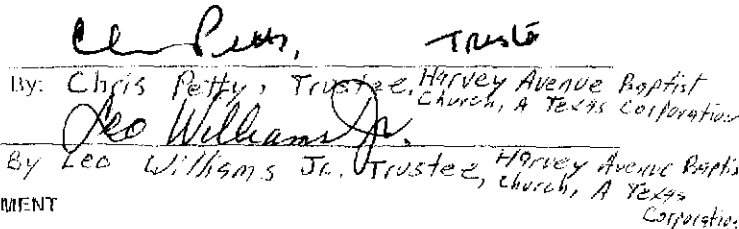 Chris Petty, Truste
By: Chris Petty, Trustee, Harvey Avenue Baptist
Church, A Texas Corporation
Leo Williams Jr.
By Leo Williams Jr. Trustee, Harvey Avenue Baptis
Church, A Texas
Corporation
MENT